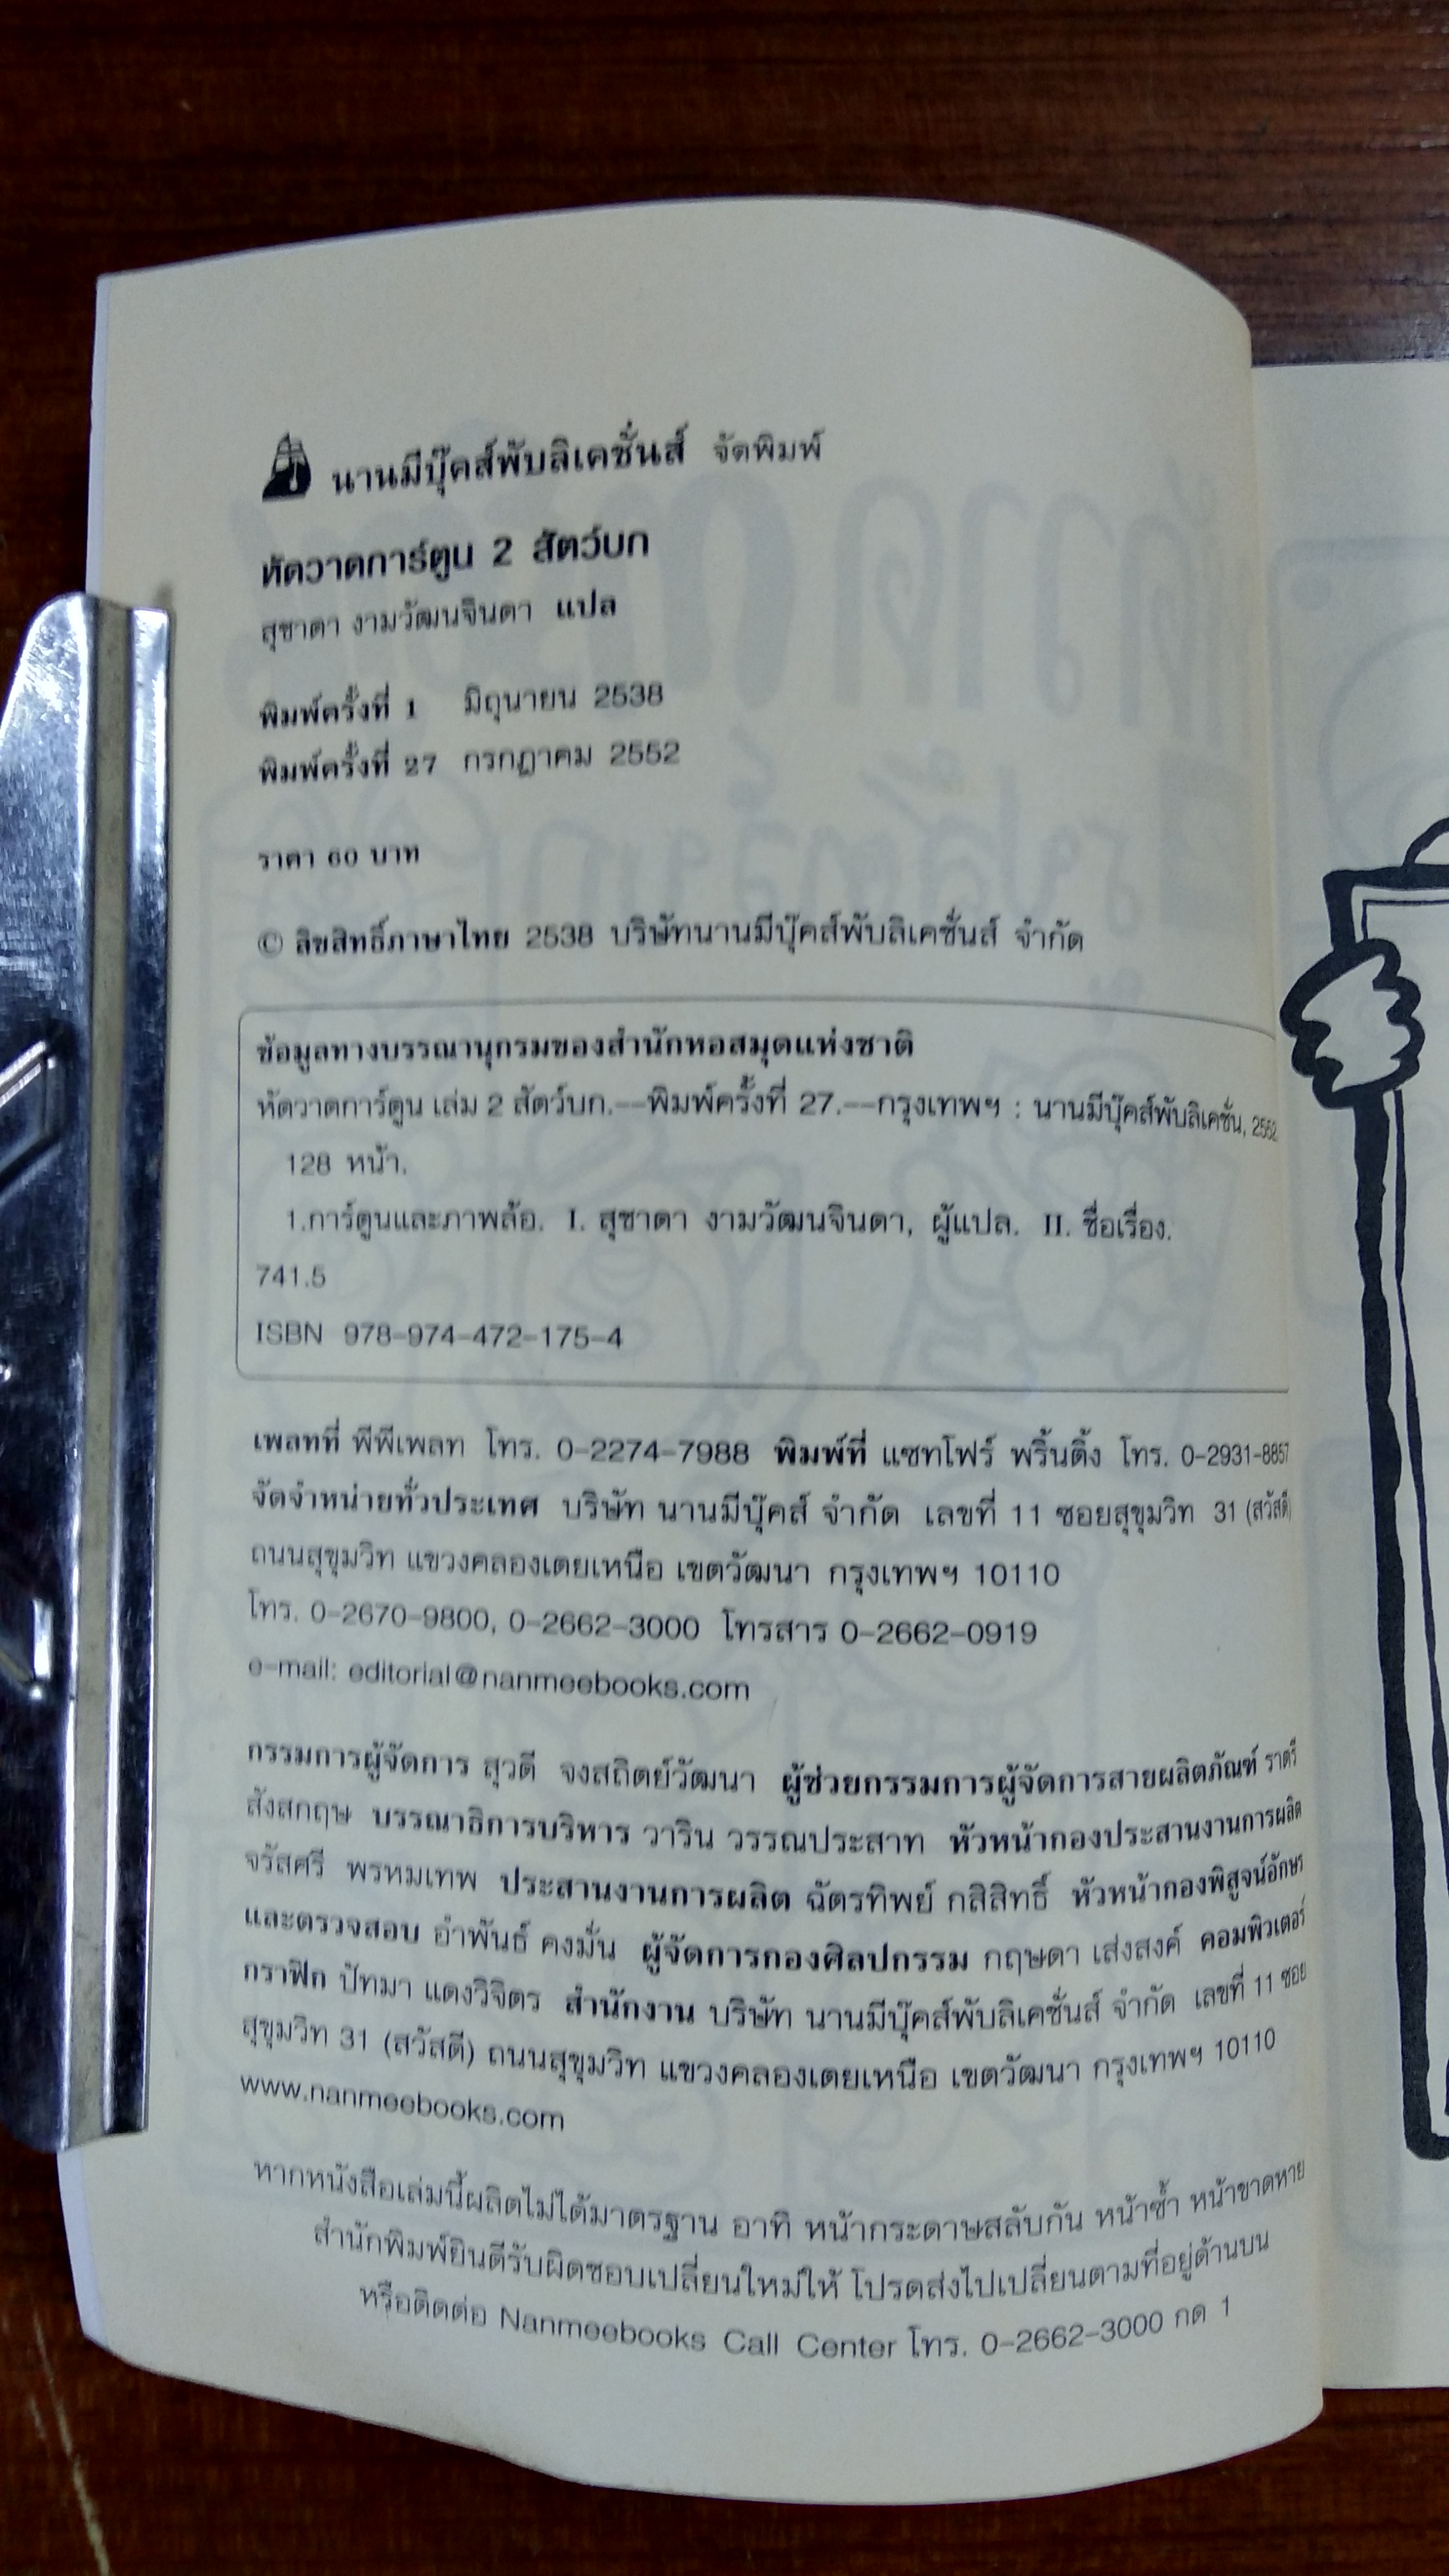 นานมีบุ๊คส์พับลิเคชั่นส์ จัดพิมพ์
หัดวาดการ์ตูน 2 สัตว์บก
สุชาดา งามวัฒนจินดา แปล
พิมพ์ครั้งที่ 1 มิถุนายน 2538
พิมพ์ครั้งที่ 27 กรกฎาคม 2552
ราคา 60 บาท
© ลิขสิทธิ์ภาษาไทย 2538 บริษัทนานมีบุ๊คส์พับลิเคชั่นส์ จำกัด
ข้อมูลทางบรรณานุกรมของสำนักหอสมุดแห่งชาติ
หัดวาดการ์ตูน เล่ม 2 สัตว์บก.--พิมพ์ครั้งที่ 27.--กรุงเทพฯ : นานมีบุ๊คส์พับลิเคชั่น, 2552
128 หน้า.
1.การ์ตูนและภาพล้อ. I. สุชาดา งามวัฒนจินดา, ผู้แปล. II. ชื่อเรื่อง.
741.5
ISBN 978-974-472-175-4
เพลทที่ พีพีเพลท โทร. 0-2274-7988 พิมพ์ที่ แซทโฟร์ พริ้นติ้ง โทร. 0-2931-8857
จัดจำหน่ายทั่วประเทศ บริษัท นานมีบุ๊คส์ จำกัด เลขที่ 11 ซอยสุขุมวิท 31 (สวัสดี)
ถนนสุขุมวิท แขวงคลองเตยเหนือ เขตวัฒนา กรุงเทพฯ 10110
โทร. 0-2670-9800, 0-2662-3000 โทรสาร 0-2662-0919
e-mail: editorial@nanmeebooks.com
กรรมการผู้จัดการ สุวดี จงสถิตย์วัฒนา ผู้ช่วยกรรมการผู้จัดการสายผลิตภัณฑ์ ราตรี
สังสกฤษ บรรณาธิการบริหาร วาริน วรรณประสาท หัวหน้ากองประสานงานการผลิต
จรัสศรี พรหมเทพ ประสานงานการผลิต ฉัตรทิพย์ กสิสิทธิ์ หัวหน้ากองพิสูจน์อักษร
และตรวจสอบ อำพันธ์ คงมั่น ผู้จัดการกองศิลปกรรม กฤษดา เส่งสงค์ คอมพิวเตอร์
กราฟิก ปัทมา แดงวิจิตร สำนักงาน บริษัท นานมีบุ๊คส์พับลิเคชั่นส์ จำกัด เลขที่ 11 ซอย
สุขุมวิท 31 (สวัสดี) ถนนสุขุมวิท แขวงคลองเตยเหนือ เขตวัฒนา กรุงเทพฯ 10110
www.nanmeebooks.com
หากหนังสือเล่มนี้ผลิตไม่ได้มาตรฐาน อาทิ หน้ากระดาษสลับกัน หน้าซ้ำ หน้าขาดหาย
สำนักพิมพ์ยินดีรับผิดชอบเปลี่ยนใหม่ให้ โปรดส่งไปเปลี่ยนตามที่อยู่ด้านบน
หรือติดต่อ Nanmeebooks Call Center โทร. 0-2662-3000 กด 1